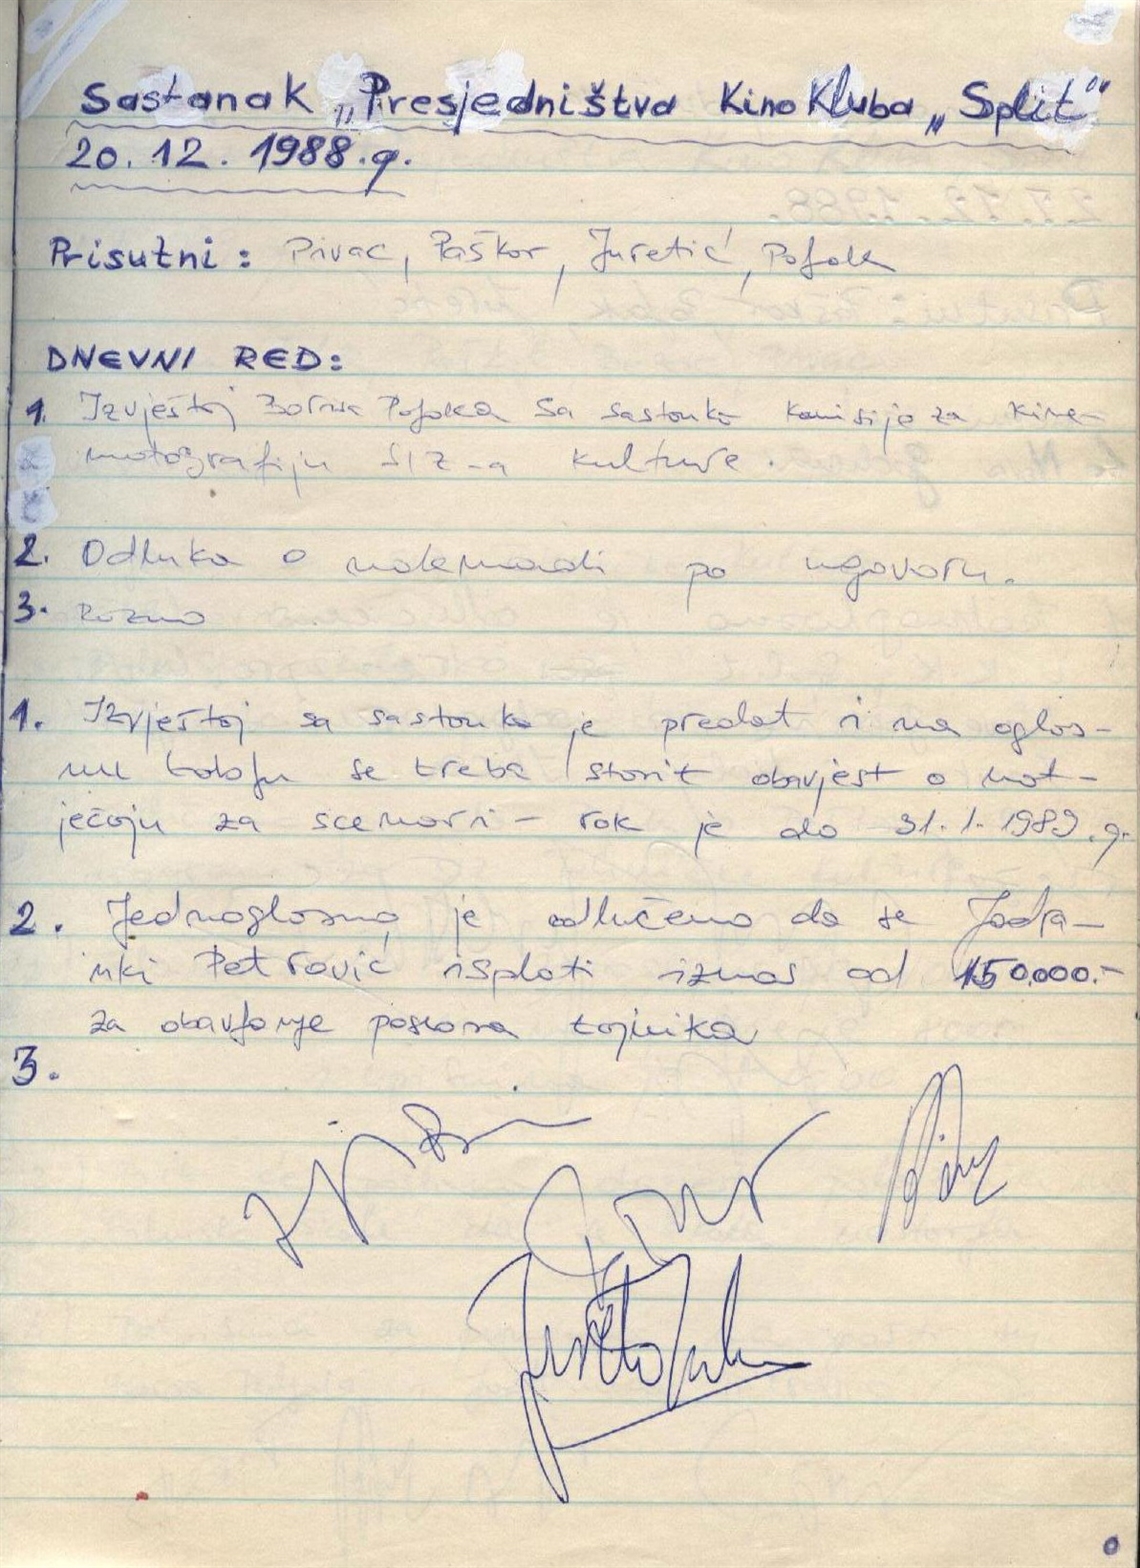 Sastanak „Presjedništva Kino Kluba „Split"
20.12.1988.g.
Prisutni: Pivac, Paškor, Juretić, Poljak
DNEVNI RED:
1. Izvještaj Borisa Poljaka sa sastanka komisije za kine-
matografiju SIZ-a kulture.
2. Odluka o naknadi po ugovoru.
3. Razno
1. Izvještaj sa sastanka je predat i na oglas-
nu tablu se treba stavit obavjest o nat-
ječaju za scenarri - rok je do 31.1.1989.g.
2. Jednoglasno je odlučeno da se Jadra-
nki Petrović isplati iznos od 150.000.-
za obavljanje poslova tajnika
3.